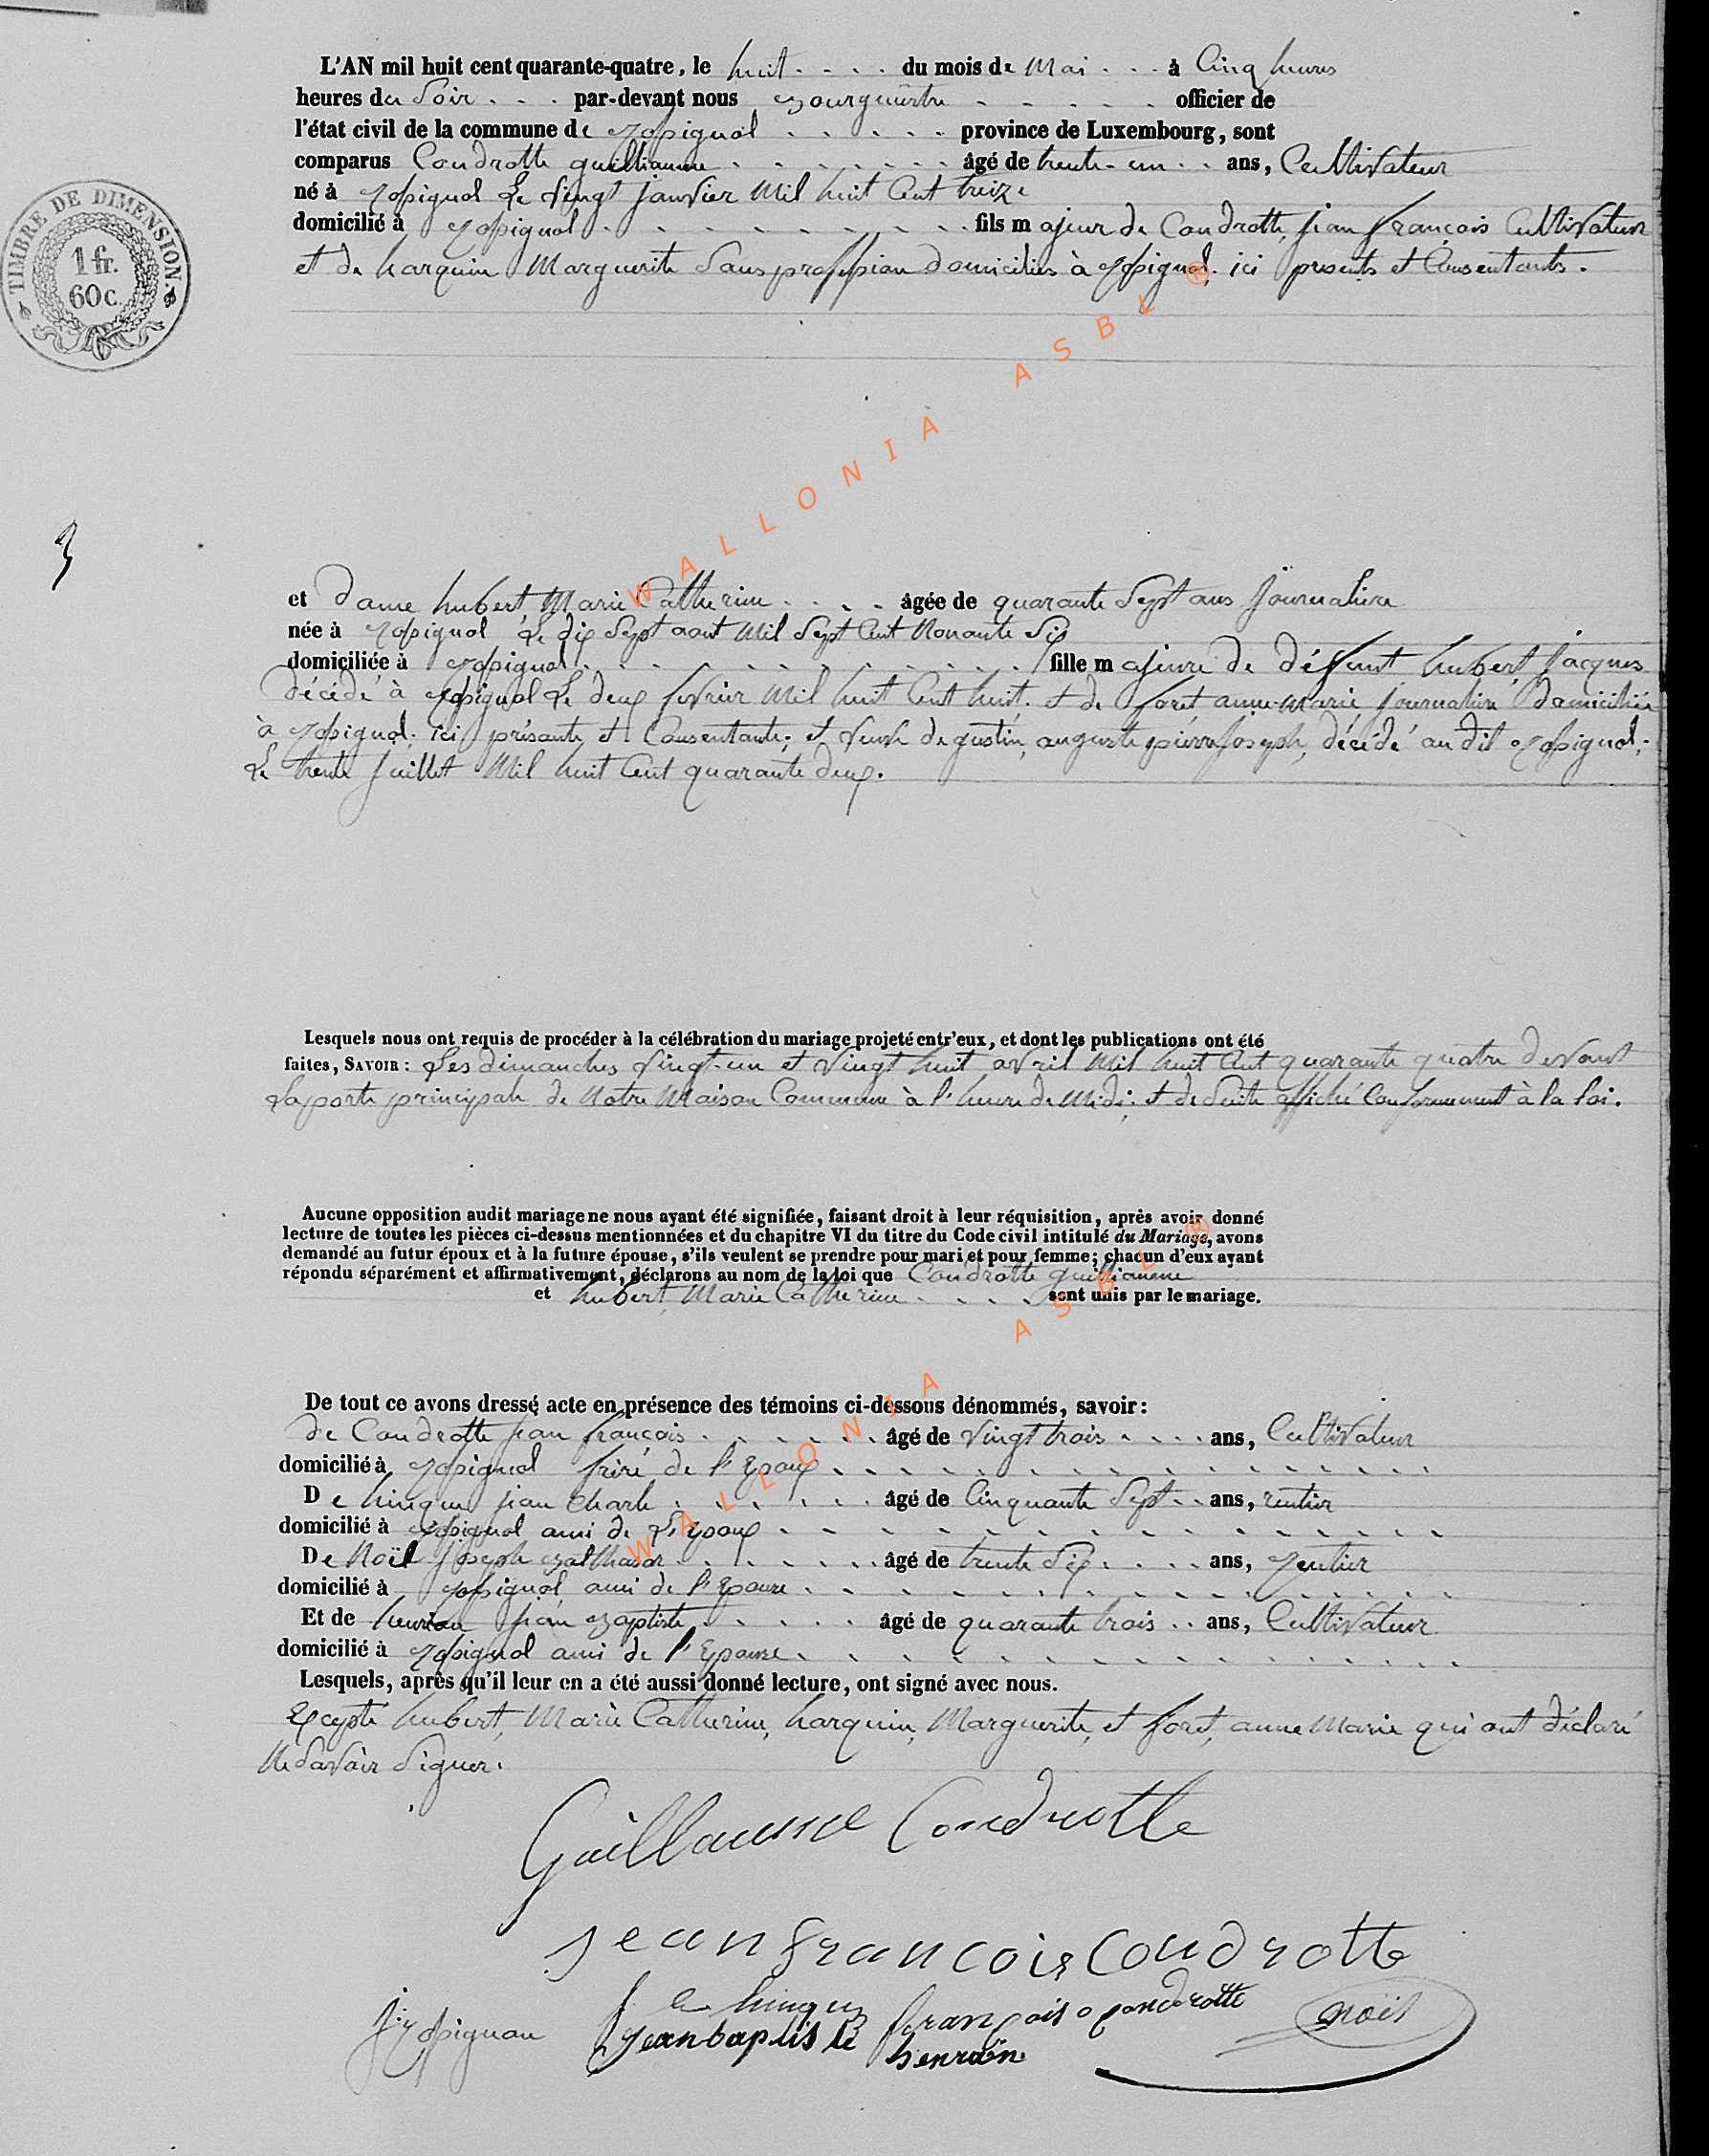 L'AN mil huit cent quarante-quatre, le huit du mois de Mai à Cinq heures
heures du Soir par-devant nous Bourguestre officier de
l'état civil de la commune de Rossignol province de Luxembourg, sont
comparus Condrotte guilliaume âgé de trente-un ans, Cultivateur
né à Rossignol Le vingt janvier Mil huit Cent treize
domicilié à Rossignol fils majeur de Condrotte, jean françois Cultivateur
et de harquin Marguerite Sans profession domiciliés à Rossignol; ici présents et Consentants.
TIMBRE DE DIMENSION.
1 fr.
60 c.
3
et Dame hubert, Marie Catherine âgée de quarante Sept ans Journalière
née à Rossignol Le dix Sept aout Mil Sept Cent Nonante Six
domiciliée à Rossignol fille majeure de défunt hubert, Jacques
décédé à Rossignol Le deux fevrier Mil huit Cent huit. et de foret anne-Marie journalière domiciliée
à Rossignol; ici présante et Consentante; et veuve de gustin, auguste pierre joseph, décédé au dit Rossignol;
Le trente Juillet Mil huit Cent quarante deux.
Lesquels nous ont requis de procéder à la célébration du mariage projeté entr'eux, et dont les publications ont été
faites, SAVOIR: Les dimanches vingt-un et vingt huit avril Mil huit Cent quarante quatre devant
La porte principale de Notre Maison Commune à l'heure de Midi; et de Suite affiché Conformement à la loi.
Aucune opposition audit mariage ne nous ayant été signifiée, faisant droit à leur réquisition, après avoir donné
lecture de toutes les pièces ci-dessus mentionnées et du chapitre VI du titre du Code civil intitulé du Mariage, avons
demandé au futur époux et à la future épouse, s'ils veulent se prendre pour mari et pour femme; chacun d'eux ayant
répondu séparément et affirmativement, déclarons au nom de la loi que Condrotte guilliaume
et hubert, Marie Catherine sont unis par le mariage.
De tout ce avons dressé acte en présence des témoins ci-dessous dénommés, savoir:
de Condrotte jean françois âgé de vingt trois ans, Cultivateur
domicilié à Rossignol frère de l'Epoux
De hinque jean Charle âgé de Cinquante Sept ans, rentier
domicilié à Rossignol ami de L'époux
De Noël joseph Balthasar âgé de trente Six ans, Rentier
domicilié à Rossignol ami de l'Epouse
Et de henrion jean Baptiste âgé de quarante trois ans, Cultivateur
domicilié à Rossignol ami de l'Epouse
Lesquels, après qu'il leur en a été aussi donné lecture, ont signé avec nous.
Excepté hubert, Marie Catherine, harquin, Marguerite, et foret, anne Marie qui ont déclaré
Ne Savoir Signer.
Guillaume Condrotte
jean francois Condrotte
hinque françois condrotte Noël
jean baptiste henrion
WALLONIA ASBL ®
WALLONIA ASBL ®